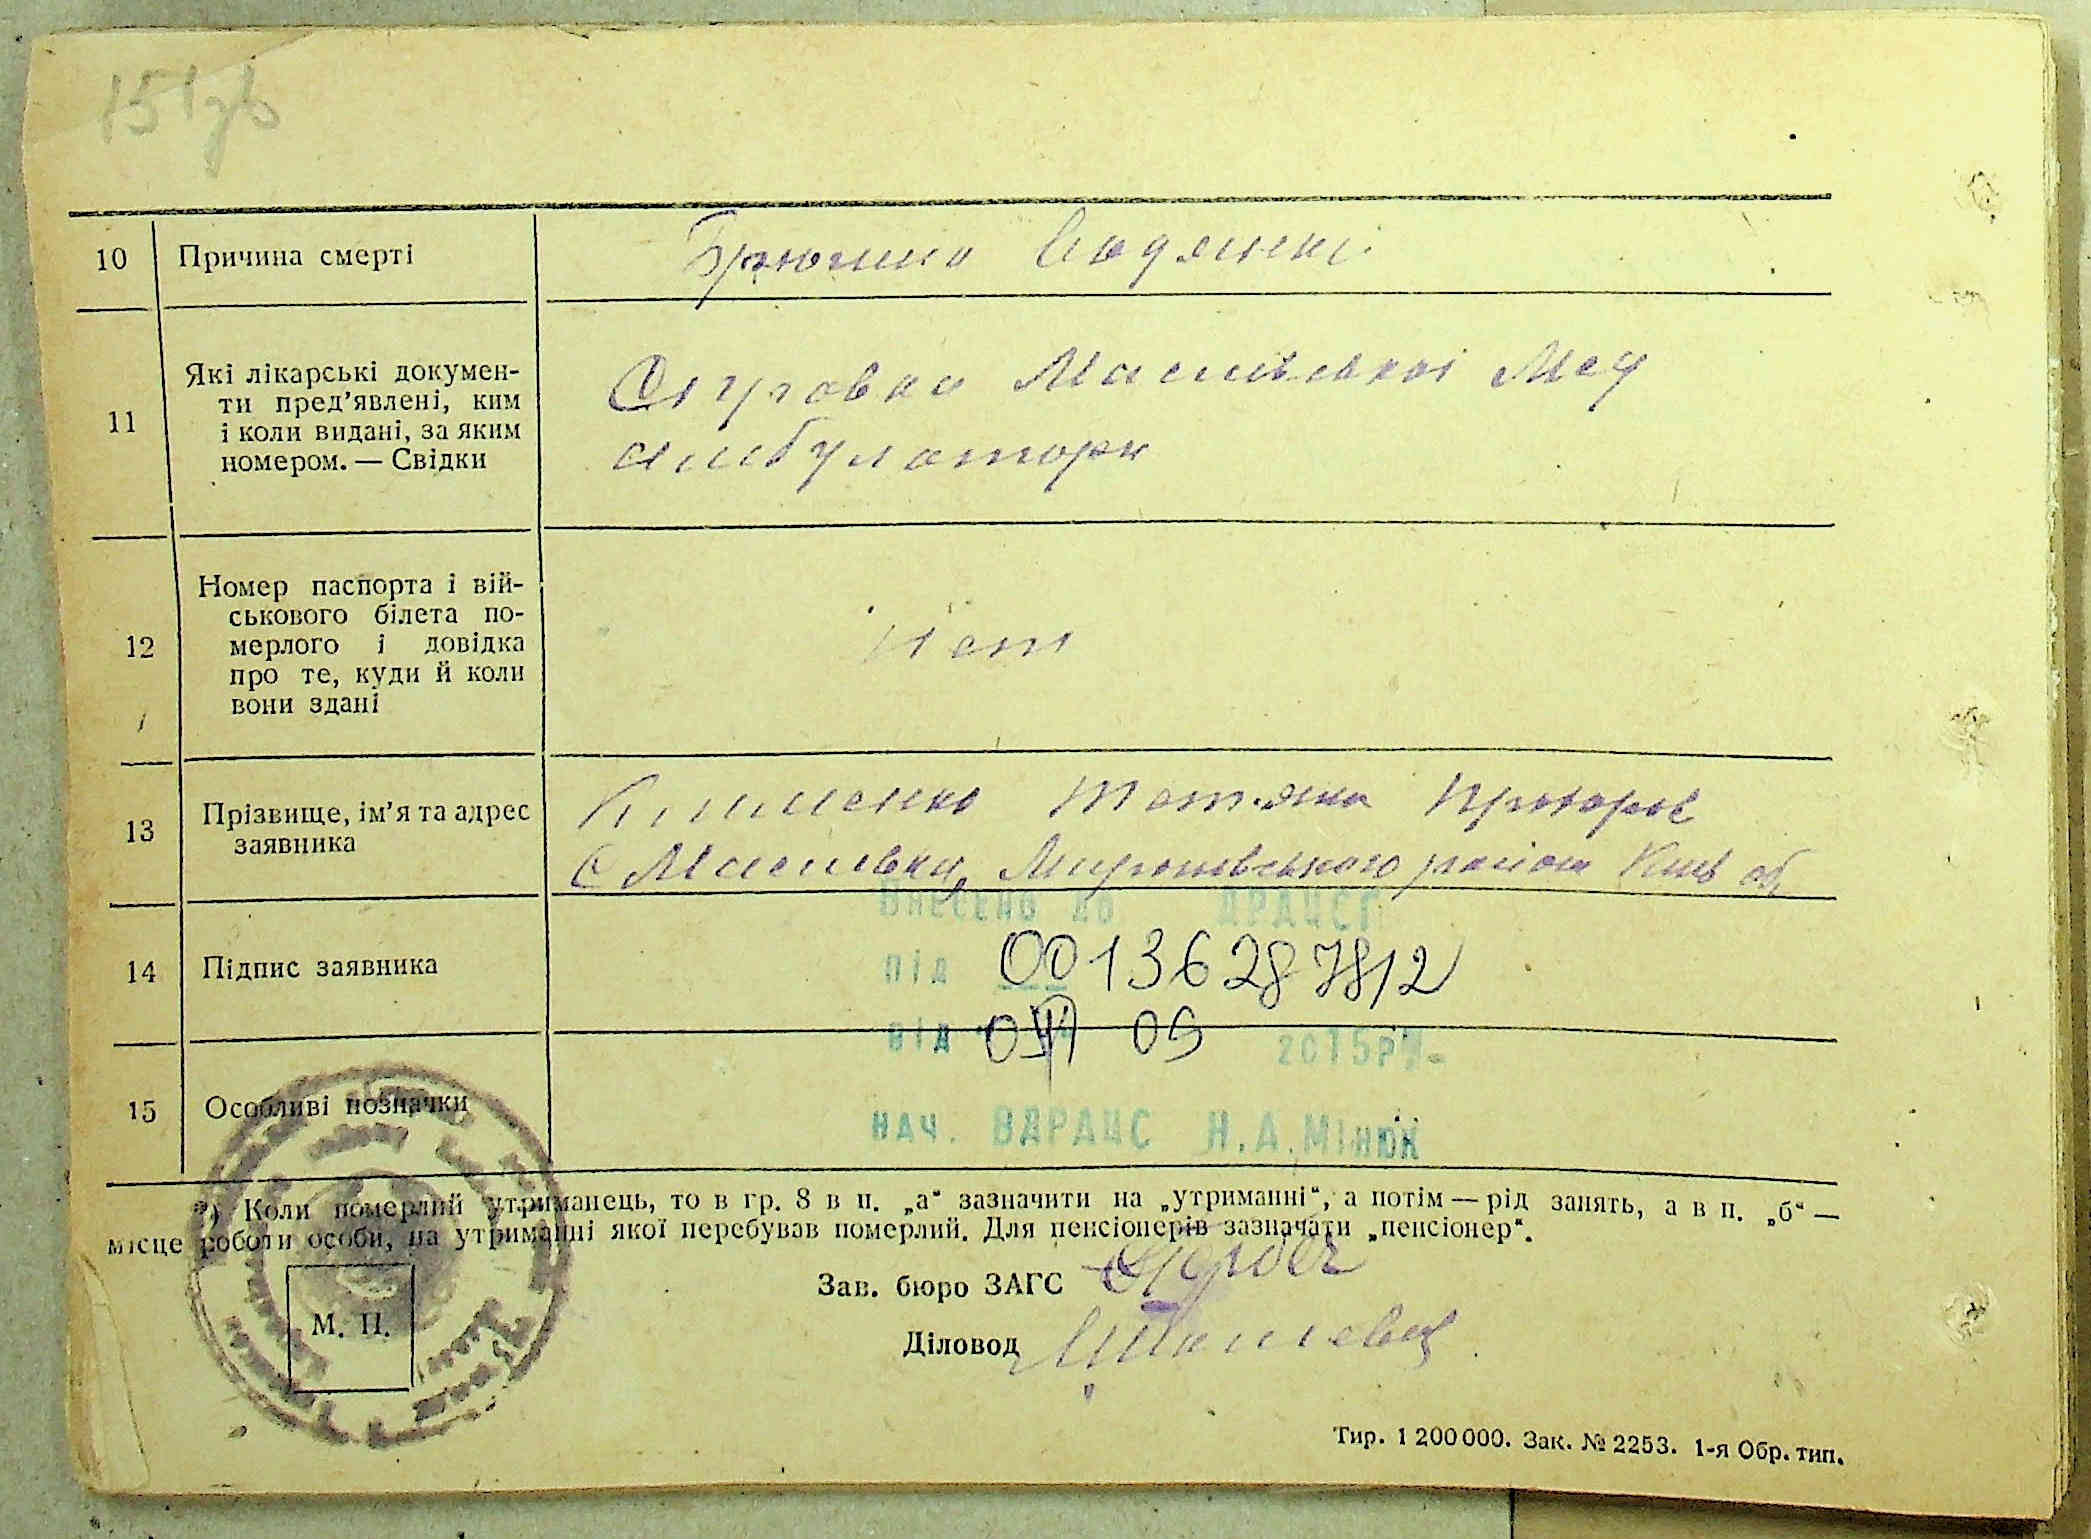 151зв
10 Причина смерті Брюшна Водянка
11 Які лікарські докумен-
ти пред'явлені, ким
і коли видані, за яким
номером. — Свідки
Маслівської Мед
амбулаторн
12 Номер паспорта і вій-
ськового білета по-
мерлого і довідка
про те, куди й коли
вони здані
Нет
13 Прізвище, ім'я та адрес
заявника
Клименко Татяна
С Маслівка, Миронівського район Київ об,
Внесено до ДРАЦСГ
14 Підпис заявника
під 00136287812
від 09 2015р.
15 Особливі позначки
нач. ВДРАЦС Н.А.Мінюк
*) Коли померлий утриманець, то в гр. 8 в п. „а“ зазначити на „утриманні“, а потім — рід занять, а в п. „б“ —
місце роботи особи, на утриманні якої перебував померлий. Для пенсіонерів зазначати „пенсіонер“.
Зав. бюро ЗАГС
М. П.
Діловод
Тир. 1 200 000. Зак. № 2253. 1-я Обр. тип.